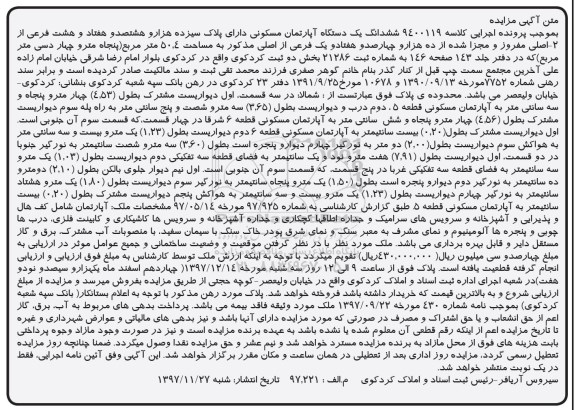 متن آگهی مزایده
بموجب پرونده اجرایی کلاسه ۹۴۰۰۱۱۹ ششدانگ یک دستگاه آپارتمان مسکونی دارای پلاک سیزده هزارو هشتصدو هفتاد و هشت فرعی از
۲-اصلی مفروز و مجزا شده از ده هزارو چهارصدو هفتادو یک فرعی از اصلی مذکور به مساحت ۵۰.۴ متر مربع(پنجاه مترو چهار دسی متر
مربع)که در دفتر جلد ۱۴۳ صفحه ۱۴۶ به شماره ثبت ۲۱۲۸۶ بخش دو ثبت کردکوی واقع در کردکوی بلوار امام رضا شرقی خیابان امام زاده
علی آخرین مجتمع سمت چپ قبل از کنار گذر بنام خانم گوهر صفری فرزند محمد تقی ثبت و سند مالکیت صادر گردیده است و برابر سند
رهنی شماره ۷۷۵۲مورخه ۱۳۹۰/۰۹/۱۳ و ۱۰۶۷۸ مورخ ۱۳۹۱/۹/۲۵ دفتر ۲۳ کردکوی در رهن بانک سپه شعبه کردکوی بنشانی: کردکوی-
خیابان ولیعصر می باشد. محدوده ی پلاک فوق عبارتست از : شمالا: در سه قسمت، اول دیواریست مشترک بطول (۴.۵۳) چهار مترو پنجاه و
سه سانتی متر به آپارتمان مسکونی قطعه ۵ . دوم درب و دیواریست بطول (۳.۶۵) سه مترو شصت و پنج سانتی متر به راه پله سوم دیواریست
مشترک بطول (۴.۵۶) چهار مترو پنجاه و شش سانتی متر به آپارتمان مسکونی قطعه ۶ شرقا در چهار قسمت،که قسمت سوم آن جنوبی است.
اول دیواریست مشترک بطول(۰.۲۰) بیست سانتیمتر به آپارتمان مسکونی قطعه ۶ دوم دیواریست بطول (۱.۲۳) یک مترو بیست و سه سانتی متر
به هواکش سوم دیواریست بطول(۲.۰۰) دو متر به نورگیر چهارم دیوارو پنجره است بطول (۳.۶۰) سه مترو شصت سانتیمتر به نورگیر جنوبا
در دو قسمت، اول دیواریست بطول (۷.۹۱) هفت مترو نود و یک سانتیمتر به فضای قطعه سه تفکیکی دوم دیواریست بطول (۱.۰۳) یک مترو
سه سانتیمتر به فضای قطعه سه تفکیکی غربا در پنج قسمت، که قسمت سوم آن جنوبی است. اول نیم دیوار جلوی بالکن بطول (۲.۱۰) دومترو
ده سانتیمتر به نورگیر دوم دیوارو پنجره است بطول (۱.۵۰) یک مترو پنجاه سانتیمتر به نورگیر سوم دیواریست بطول (۱.۸۰) یک مترو هشتاد
سانتیمتر به نورگیر چهارم دیواریست بطول (۱.۲۳) یک مترو بیست و سه سانتیمتر به هواکش پنجم دیواریست مشترک بطول (۰.۲۰) بیست
سانتیمتر به آپارتمان مسکونی قطعه ۵ طبق گزارش کارشناسی به شماره ۹۷/۹۲۵ مورخه ۹۷/۰۵/۱۴ مشخصات ملک، آپارتمان شامل کف هال
و پذیرایی و آشپزخانه و سرویس های سرامیک و جداره اطاقها گچکاری و جداره آشپزخانه و سرویس ها کاشیکاری و کابینت فلزی، درب ها
چوبی و پنجره ها آلومینیوم و نمای مشرف به معبر سنگ و نمای شرق پودر خاک سنگ با سیمان سفید، با منصوبات آب مشترک، برق و گاز
مستقل دایر و قابل بهره برداری می باشد. ملک مورد نظر با در نظر گرفتن موقعیت و وضعیت ساختمانی و جمیع عوامل موثر در ارزیابی به
مبلغ چهارصدو سی میلیون ریال( ۴۳۰,۰۰۰,۰۰۰ریال) تقویم میگردد با توجه به اینکه ارزش ملک توسط کارشناس به مبلغ فوق ارزیابی و ارزیابی
انجام گرفته قطعیت یافته است. پلاک فوق از ساعت ۹ الی ۱۲ روز سه شنبه مورخه ۱۳۹۷/۱۲/۱۴( چهاردهم اسفند ماه یکهزارو سیصدو نودو
هفت)در شعبه اجرای اداره ثبت اسناد و املاک کردکوی واقع در خیابان ولیعصر -کوچه حجتی از طریق مزایده بفروش میرسد و مزایده از مبلغ
ارزیابی شروع و به بالاترین قیمت که خریدار داشته باشد فروخته خواهد شد. پلاک مورد رهن مذکور با توجه به اعلام بستانکار( بانک سپه شعبه
کردکوی) بموجب نامه شماره ۴۳۰ مورخه ۱۳۹۷/۰۹/۲۲ ملک مورد وثیقه فاقد بیمه می باشد. پرداخت بدهی های مربوط به آب، برق، گاز
اعم از حق انشعاب و یا حق اشتراک و مصرف در صورتی که مورد مزایده دارای آنها باشد و نیز بدهی های مالیاتی و عوارض شهرداری و غیره
تا تاریخ مزایده اعم از اینکه رقم قطعی آن معلوم شده یا نشده باشد به عهده برنده مزایده است و نیز در صورت وجود مازاد وجوه پرداختی
بابت هزینه های فوق از محل مازاد به برنده مزایده مسترد خواهد شد و نیم عشر و حق مزایده نقدا وصول میگردد. ضمنا چنانچه روز مزایده
تعطیل رسمی گردد، مزایده روز اداری بعد از تعطیلی در همان ساعت و مکان مقرر برگزار خواهد شد. این آگهی وفق آئین نامه اجرایی، فقط
در یک نوبت منتشر خواهد شد.
سیروس آریافر-رئیس ثبت اسناد و املاک کردکوی م.الف : ۹۷.۲۲۱ تاریخ انتشار: شنبه ۱۳۹۷/۱۱/۲۷